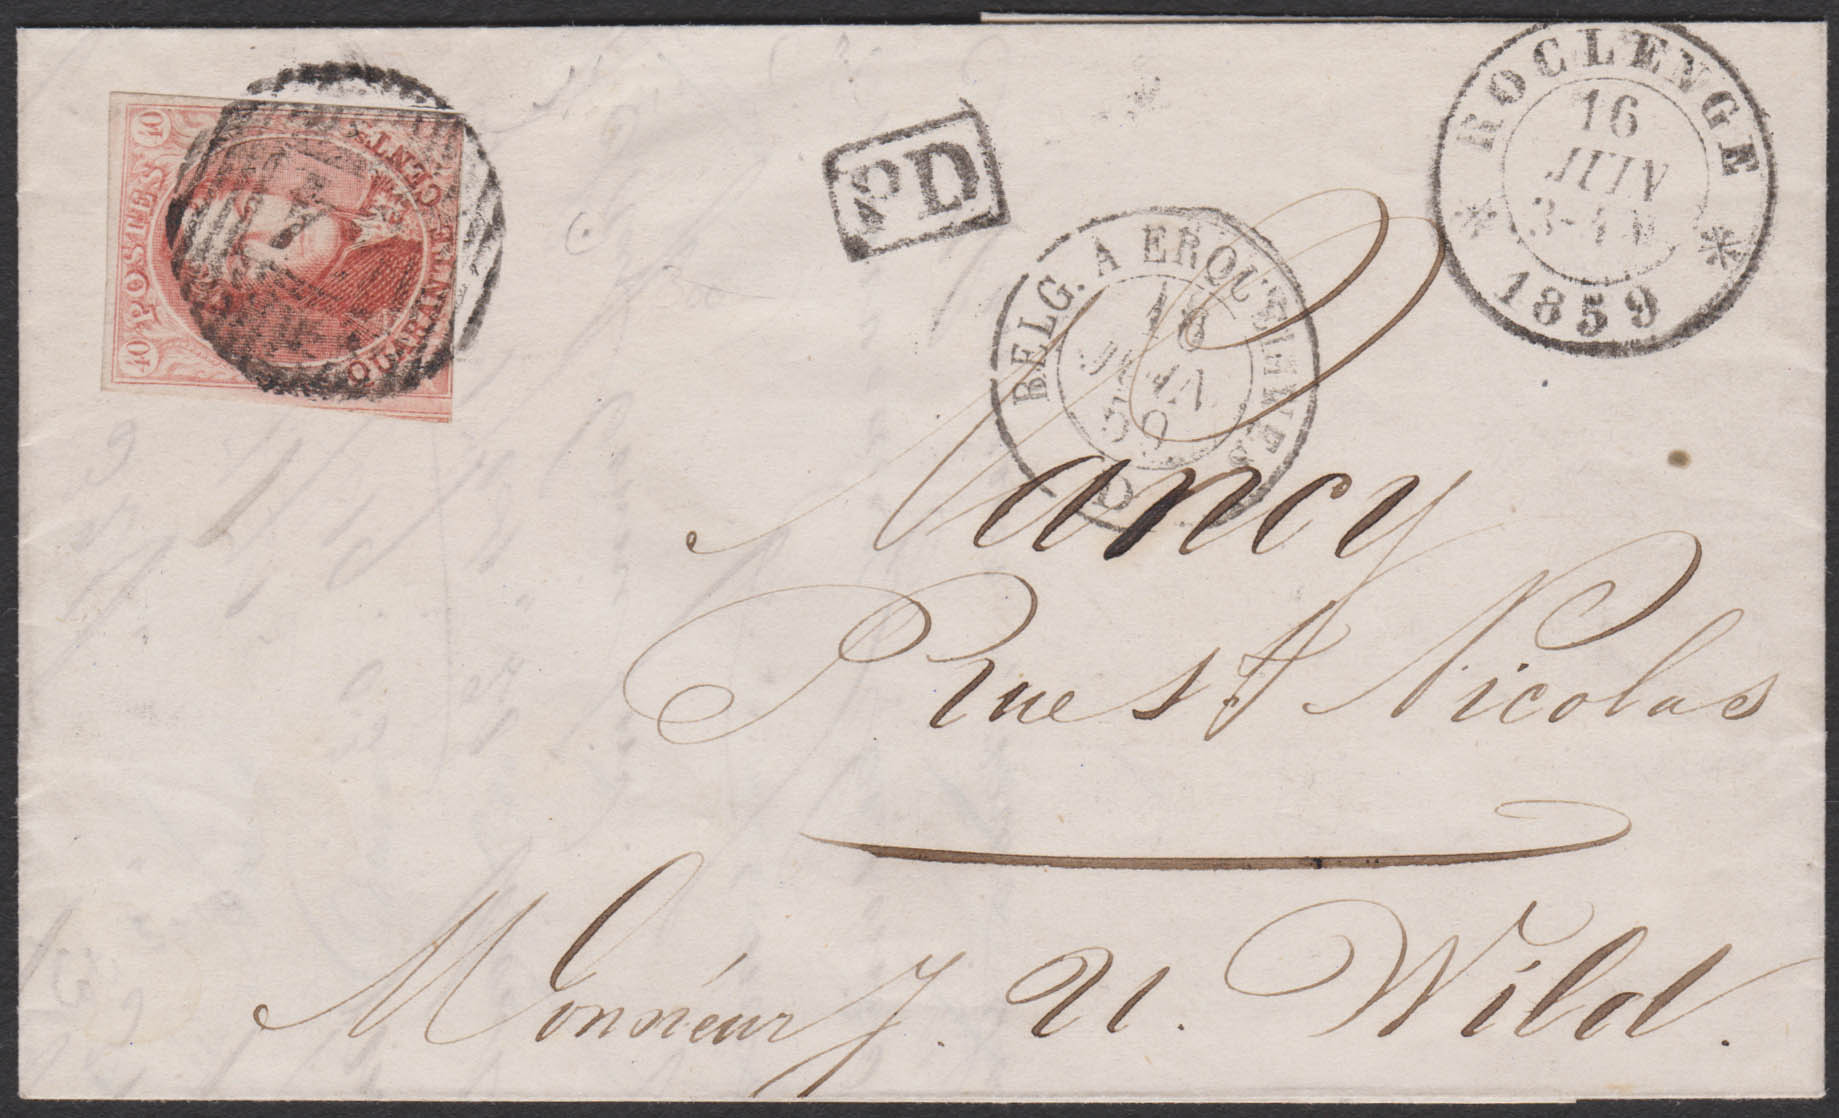 POSTES
40
40
CENTS
QUARANTE
PD
ROCLENGE
16
JUIN
3-4
1859
BELG. A ERQUELINES
18
JUIN
59
Nancy
Rue St Nicolas
Monsieur J. U. Wild.